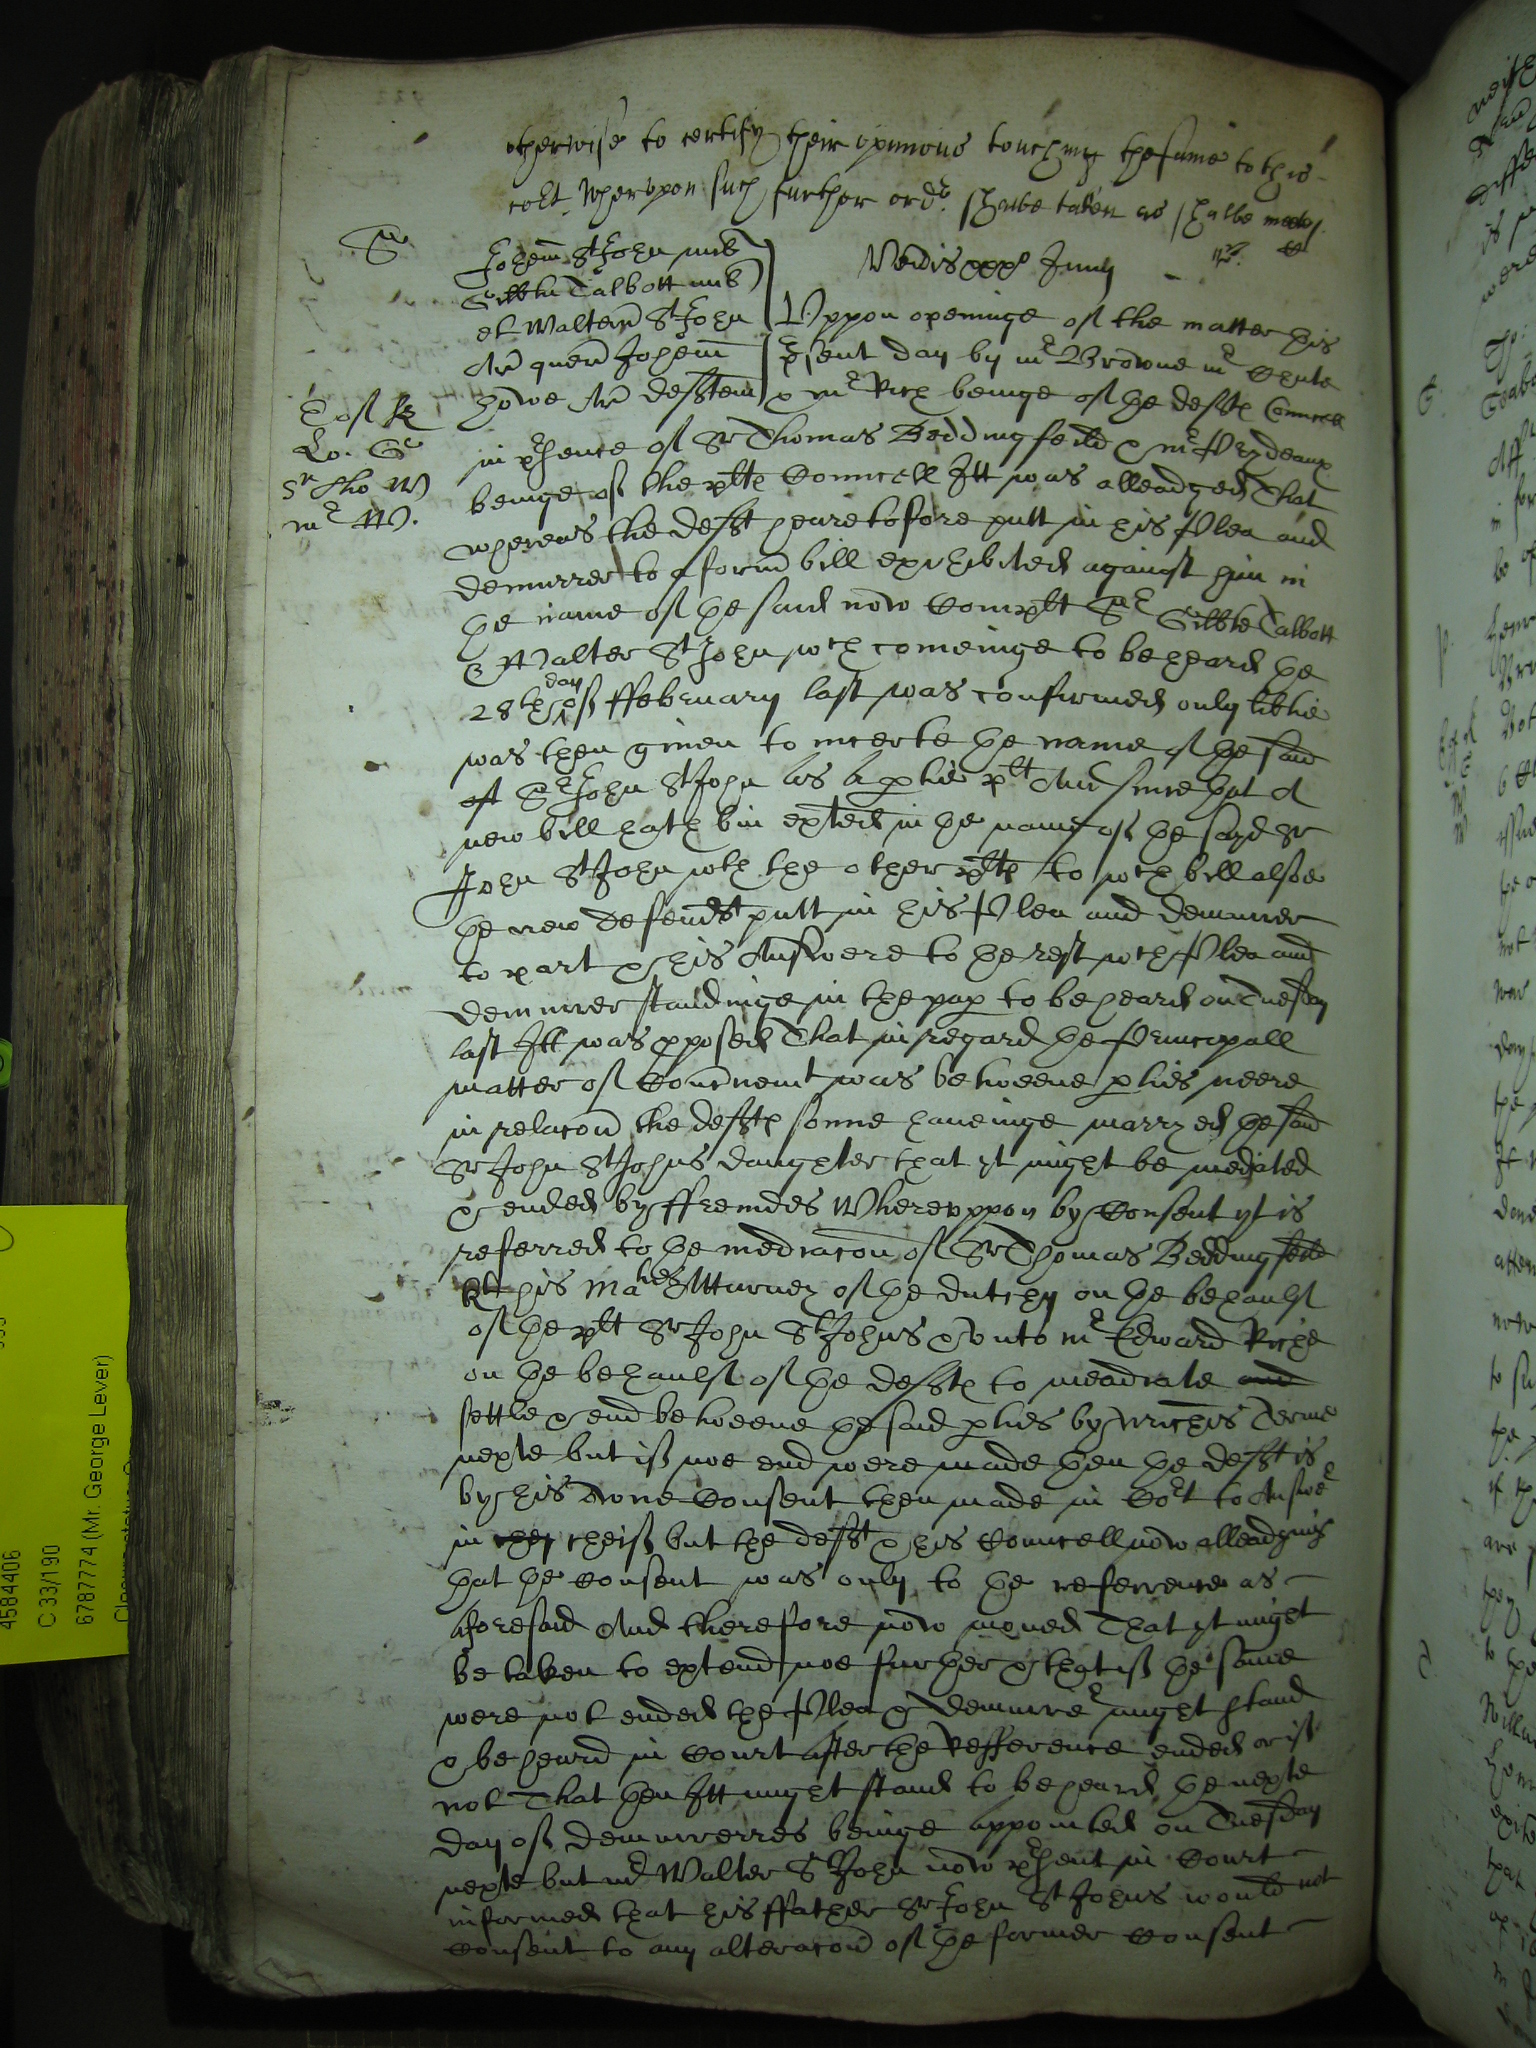 otherwise to certify their opinions touching the same to this
cort. Wherupon such further ordr. shalbe taken as shalbe meete.
Johem St John mil
Gilbtu Talbott mil
et Walteru St John
Ar quer Johem
Howe Ar defftem
Veneris xxxo Junij
Uppon openinge of the matter this
psent day by mr Browne mr Chute
& mr Rich beinge of the defftes Councell
in psence of Sr Thomas Beddingfeild & mr Prydeaux
beinge of the pltes Councell Itt was alleadged That
whereas the defft heretofore putt in his Plea and
demurrer to a form bill exhibited against him in
the name of the said now Complt Sr Gilbte Talbott
& Walter St John wch comeinge to be heard the
28th day of ffebruary last was confirmed only libtie
was then given to incerte the name of the said
Sr John St John as a partie plt And since that A
new bill hath bin exted in the name of the sayd Sr
John St John wth the other pltes to wch bill alsoe
the new defendt putt in his Plea and demurrer
to part & his Answere to the rest wch Plea and
demurrer standinge in the pap to be heard on Tuesday
last Itt was pposed That in regard the Principall
matter of Concernemt was betweene pties neere
in relacon the defftes sonne haveinge marryed the said
Sr John St Johns daughter that yt might be mediated
& ended by ffreindes Whereuppon by Consent yt is
referred to the mediacon of Sr Thomas Beddingfeild
Kt his Maties Atturney of the dutchy on the behaulf
of the plt Sr John St Johns & unto mr Edward Riche
on the behaulf of the defftes to meadiate and
settle & end betweene the said pties by Michis Terme
nexte but if noe end were made then the defft is
by his owne Consent then made in Cort to Answer
in cheif but the defft & his Councell now alleadging
that the Consent was only to the referrence as
aforesaid And therefore now moved That yt might
be taken to extend noe further & that if the same
were not ended the Plea & demurrer might stand
& be heard in Court after the Refference ended or if
not That then Itt might stand to be heard the nexte
day of demurrerres beinge appointed on Tuesday
nexte but mr Walter St John now psent in Court
informed that his ffather Sr John St Johns would not
Consent to any alteracon of the former Consent
Lo. Gr
Sr Tho W
mr W.
4584406
C 33/190
6787774 (Mr. George Lever)